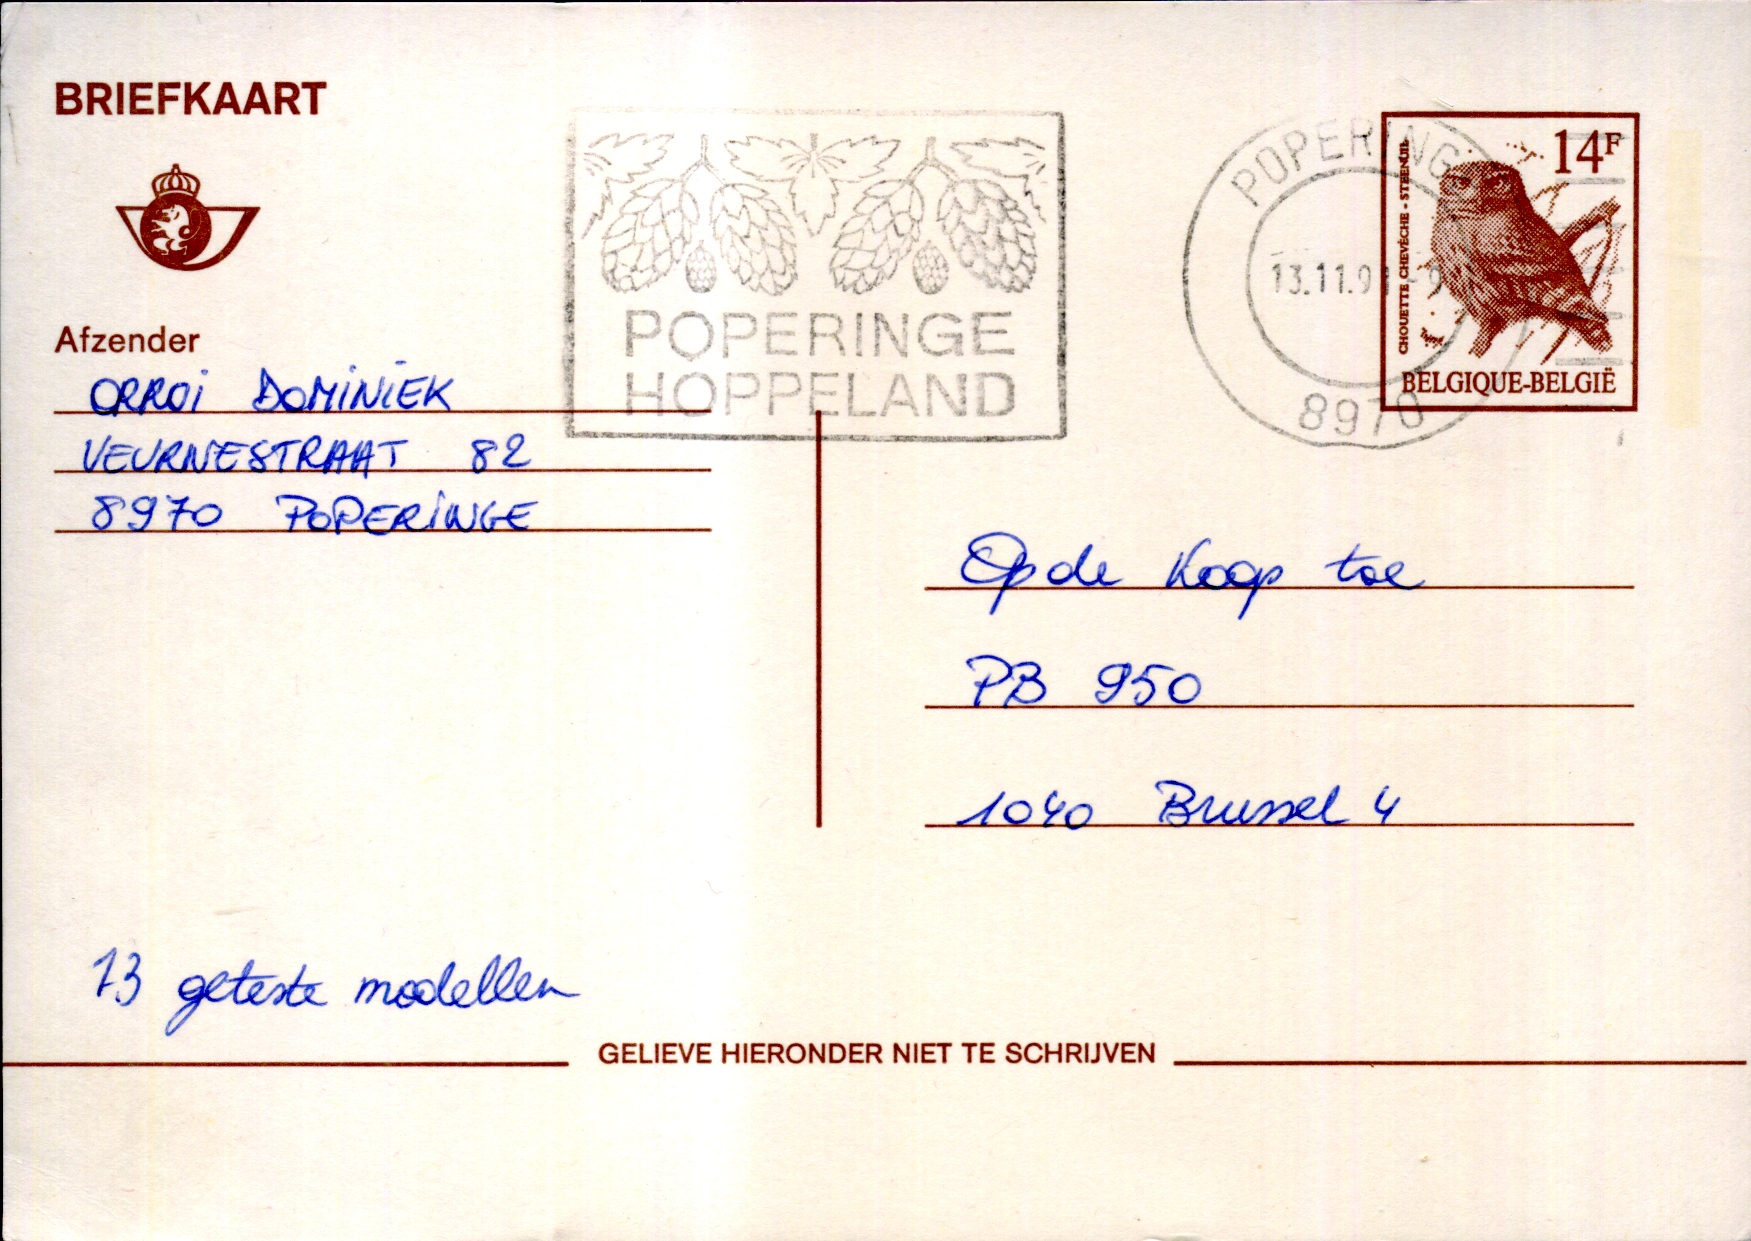 BRIEFKAART
POPERINGE
14F
CHOUETTE CHEVÊCHE - STEENUIL
13.11.9
BELGIQUE-BELGIË
8970
POPERINGE
HOPPELAND
Afzender
ORROI DOMINIEK
VEURNESTRAAT 82
8970 POPERINGE
Op de Koop toe
PB 950
1040 Brussel 4
13 geteste modellen
GELIEVE HIERONDER NIET TE SCHRIJVEN